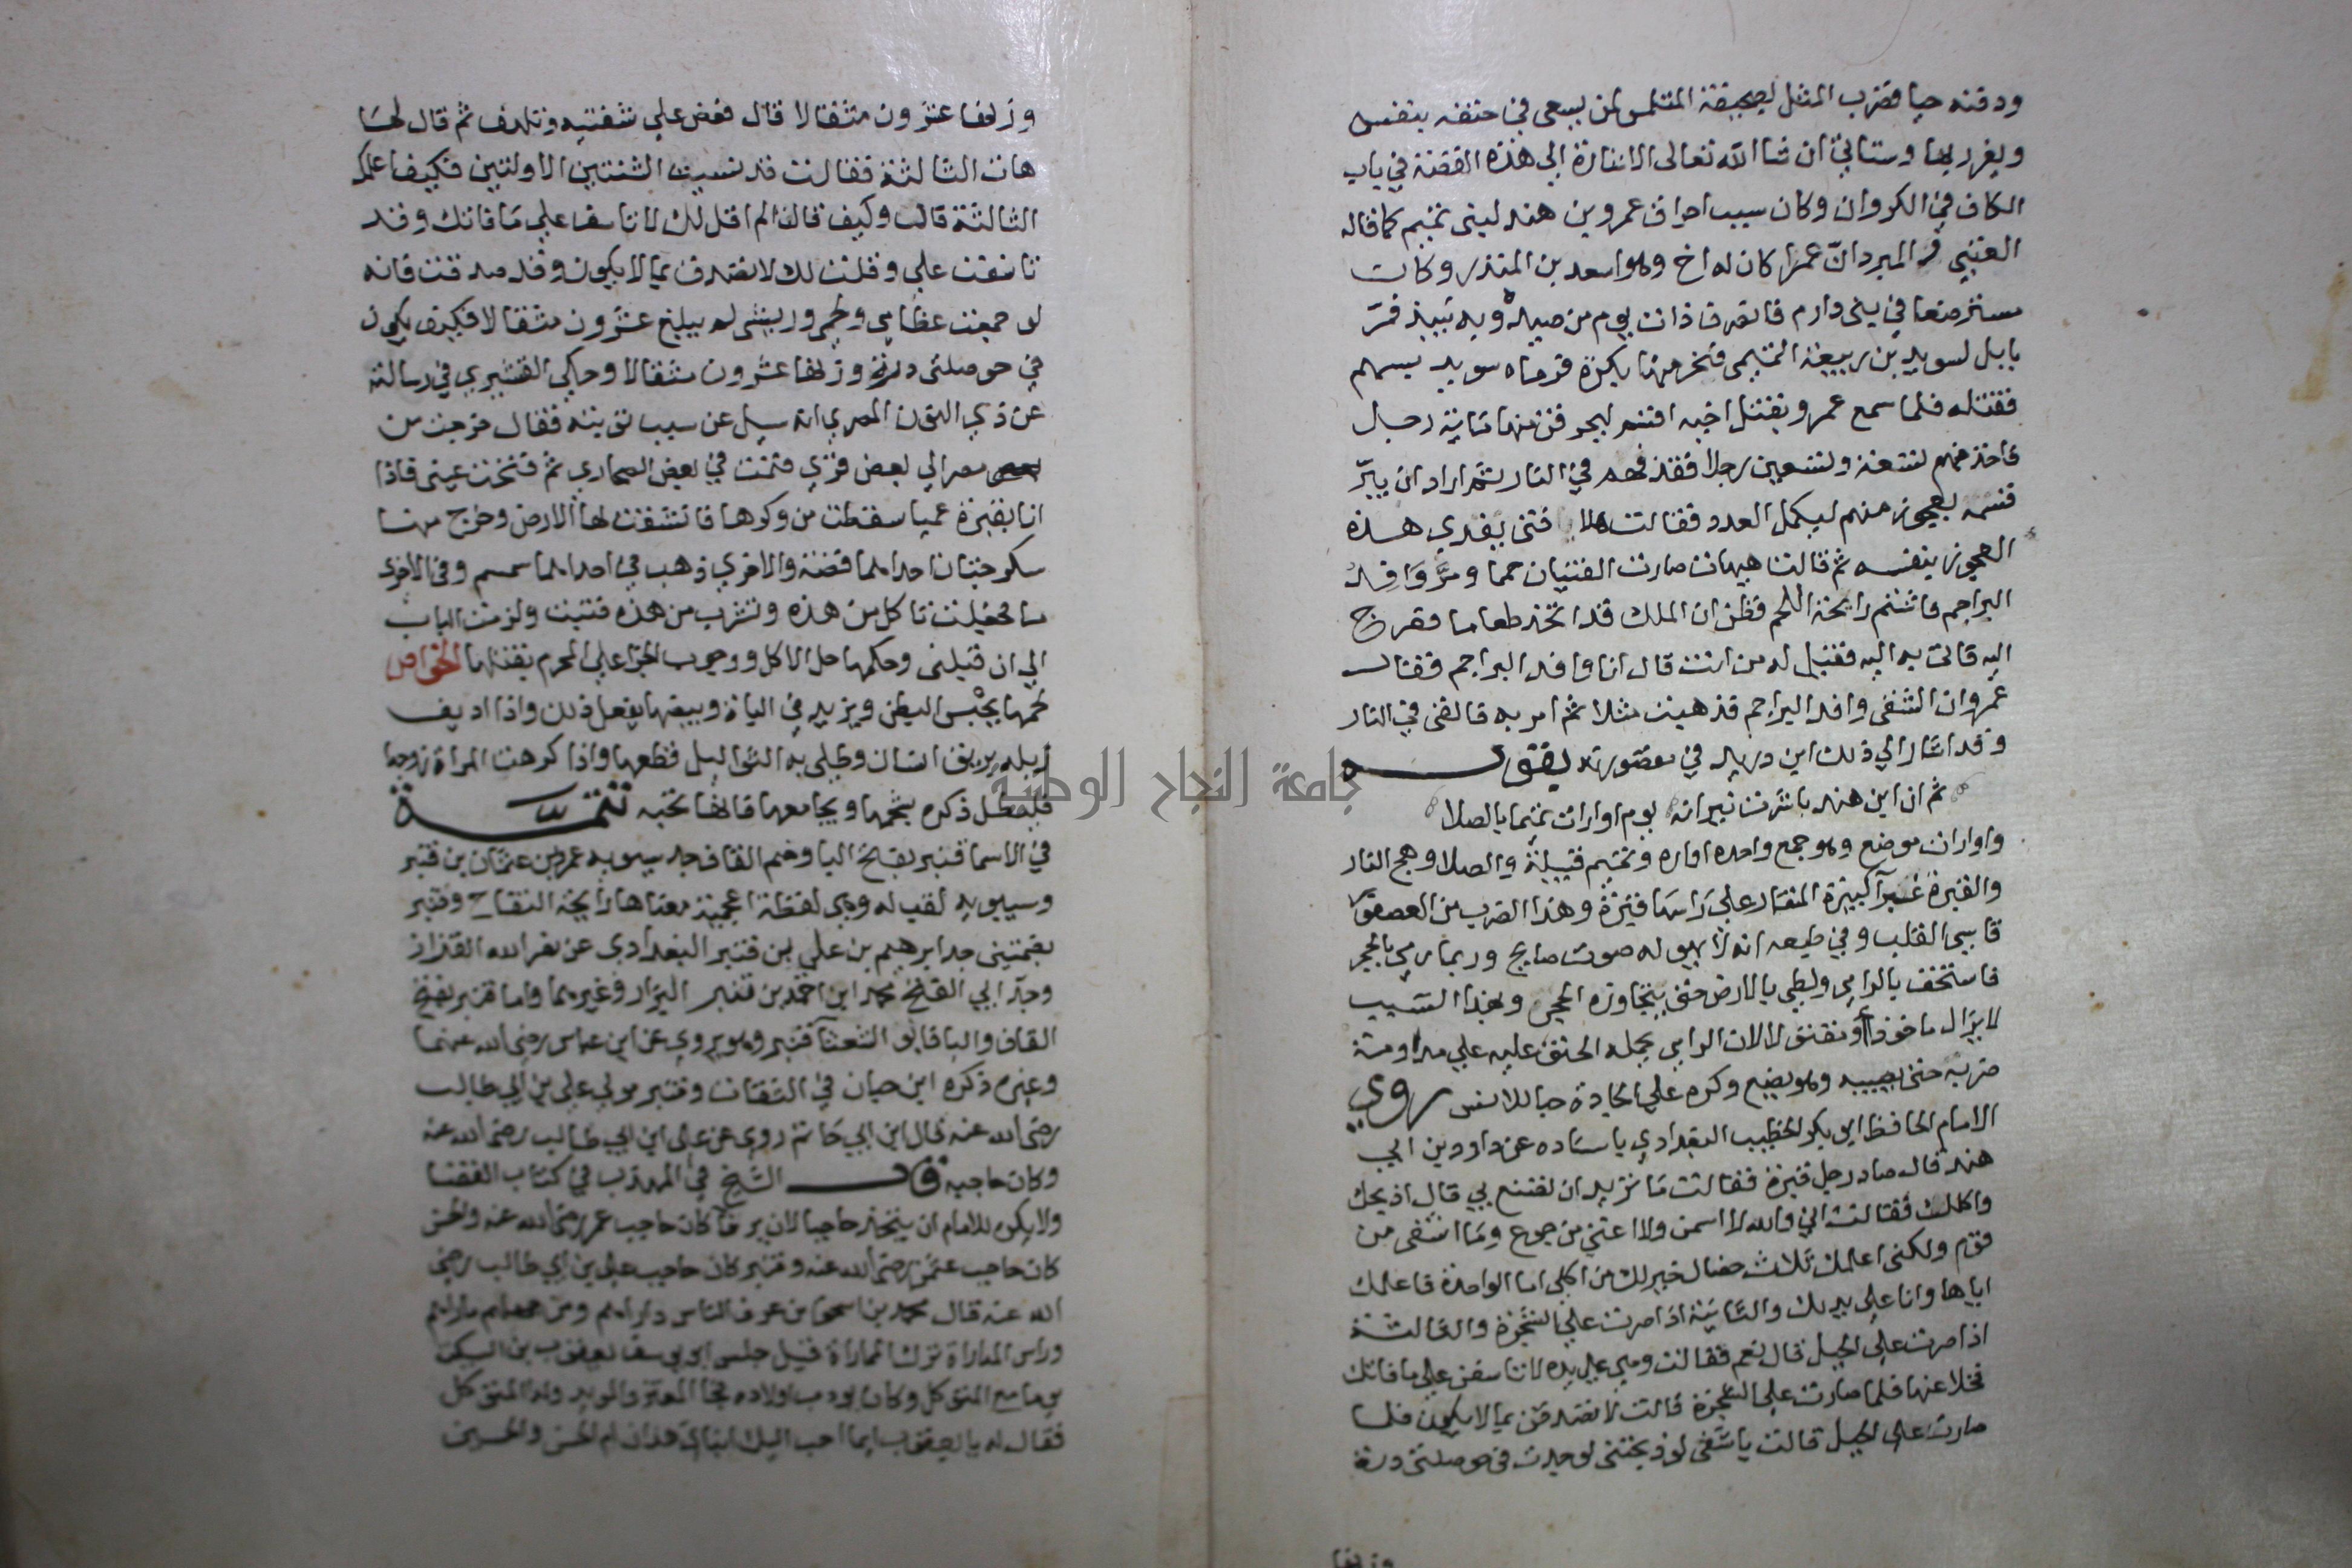 ودفنه حيا فضرب المثل لصحيفة المتلمس لمن يسعى في حتفه بنفسه
ويغرر بها وستاتي ان شا الله تعالى الاشارة الى هذه القصة في باب
الكاف في الكروان وكان سبب احراق عمرو بن هند لبني تميم كما قاله
العتبي والمبرد ان عمرا كان له اخ وهو اسعد بن المنذر وكان
مسترضعا في بني دارم فانصرف ذات يوم من صيده وبه نبيذ فمر
بابل لسويد بن ربيعة التميمي فنحر منها بكرة فرماه سويد بسهم
فقتله فلما سمع عمرو بقتل اخيه اقسم ليحرقن منهم ماية رجل
فاخذ منهم تسعة وتسعين رجلا فقذفهم في النار ثم اراد ان يبر
قسمه بعجوز منهم ليكمل العدد فقالت هلا فتى يفدي هذه
العجوز بنفسه ثم قالت هيهات صارت الفتيان حمما ومر وافد
البراجم فاشتم رايحة اللحم فظن ان الملك قد اتخذ طعاما فعرج
اليه فاتى به اليه فقيل له من انت قال انا وافد البراجم فقال
عمرو ان الشقي وافد البراجم فذهبت مثلا ثم امر به فالقي في النار
وقد اشار الى ذلك ابن دريد في مقصورته بقوله
ثم ان ابن هند باشرت نيرانه يوم اوارات تميما بالصلا
واوارات موضع وهو جمع واحده اواره وتميم قبيلة والصلا وهج النار
والقبرة غبرا كبيرة المنقار على راسها قبرة وهذا الضرب من العصافير
قاسي القلب وفي طبعه انه لا يهوله صوت صايح وربما رمي بالحجر
فاستخف بالرامي ولطي بالارض حتى يتجاوزه الحجر وبهذا السبب
لا يزال ماخوذا او مقتولا لان الرامي يحمله الحنق عليه على مداومة
ضربه حتى يصيبه وهو يضع وكره على الجادة حبا للانس روي
الامام الحافظ ابو بكر الخطيب البغدادي باسناده عن داوود بن ابي
هند قال صاد رجل قبرة فقالت ما تريد ان تصنع بي قال اذبحك
واكلك فقالت اني والله لا اسمن ولا اغني من جوع وما اشفى من
قرم ولكني اعلمك ثلاث خصال خير لك من اكلي اما الواحدة فاعلمك
اياها وانا على يدك والثانية اذا صرت على الشجرة والثالثة
اذا صرت على الجبل قال نعم فقالت وهي على يده لا تاسفن على ما فاتك
فخلا عنها فلما صارت على الشجرة قالت لا تصدقن بما لا يكون فلما
صارت على الجبل قالت يا شقي لو ذبحتني لوجدت في حوصلتي درة
وزنها
وزنها عشرون مثقالا قال فعض على شفتيه وتلهف ثم قال لها
هات الثالثة فقالت قد نسيت الثنتين الاولتين فكيف اعلمك
الثالثة قال وكيف قالت الم اقل لك لا تاسف على ما فاتك وقد
تاسفت علي وقلت لك لا تصدق بما لا يكون وقد صدقت فانه
لو جمعت عظامي ولحمي وريشي لم يبلغ عشرون مثقالا فكيف يكون
في حوصلتي درة وزنها عشرون مثقالا وحكى القشيري في رسالته
عن ذي النون المصري انه سيل عن سبب توبته فقال خرجت من
مصر الى بعض قرى فنمت في بعض الصحاري ثم فتحت عيني فاذا
انا بقبرة عميا سقطت من وكرها فانشقت لها الارض وخرج منها
سكرجتان احداهما فضة والاخرى ذهب في احداهما سمسم وفي الاخرى
ما فجعلت تاكل من هذه وتشرب من هذه فتبت ولزمت الباب
الى ان قبلني وحكمها حل الاكل ووجوب الجزا على المحرم بقتلها الخواص
لحمها يحبس البطن ويزيد في الباة وبيضها يفعل ذلك واذا اديف
زبله بريق انسان وطلي به الثواليل قطعها واذا كرهت المراة زوجها
فليطل ذكره بشحمها ويجامعها فانها تحبه تتمة
في الاسما قنبر بفتح البا وضم القاف جد سيبويه عمرو بن عثمان بن قنبر
وسيبويه لقب له وهي لفظة اعجمية معناها رايحة التفاح وقنبر
بضمتين جد ابرهيم بن علي بن قنبر البغدادي عن نصر الله القزاز
وجد ابي الفتح محمد ابن احمد بن قنبر البزار وغيرهما واما قنبر بفتح
القاف والبا فابو الشعثا قنبر وهو يروي عن ابن عباس رضي الله عنهما
وغيره ذكره ابن حبان في الثقات وقنبر مولى علي بن ابي طالب
رضي الله عنه قال ابن ابي حاتم روى عن علي ابن ابي طالب رضي الله عنه
وكان حاجبه قال الشيخ في المهذب في كتاب القضا
ولا يكره للامام ان يتخذ حاجبا لان يرفا كان حاجب عمر رضي الله عنه والحسن
كان حاجب عثمن رضي الله عنه وقنبر كان حاجب علي بن ابي طالب رضي
الله عنه قال محمد بن اسحق من عرف الناس داراهم ومن جهلهم ماراهم
وراس المداراة ترك المماراة قيل جلس ابو يوسف يعقوب بن السكيت
يوما مع المتوكل وكان يودب اولاده فجا المعتز والمويد ولدا المتوكل
فقال له يا يعقوب ايما احب اليك ابناي هذان ام الحسن والحسين
جامعة النجاح الوطنية